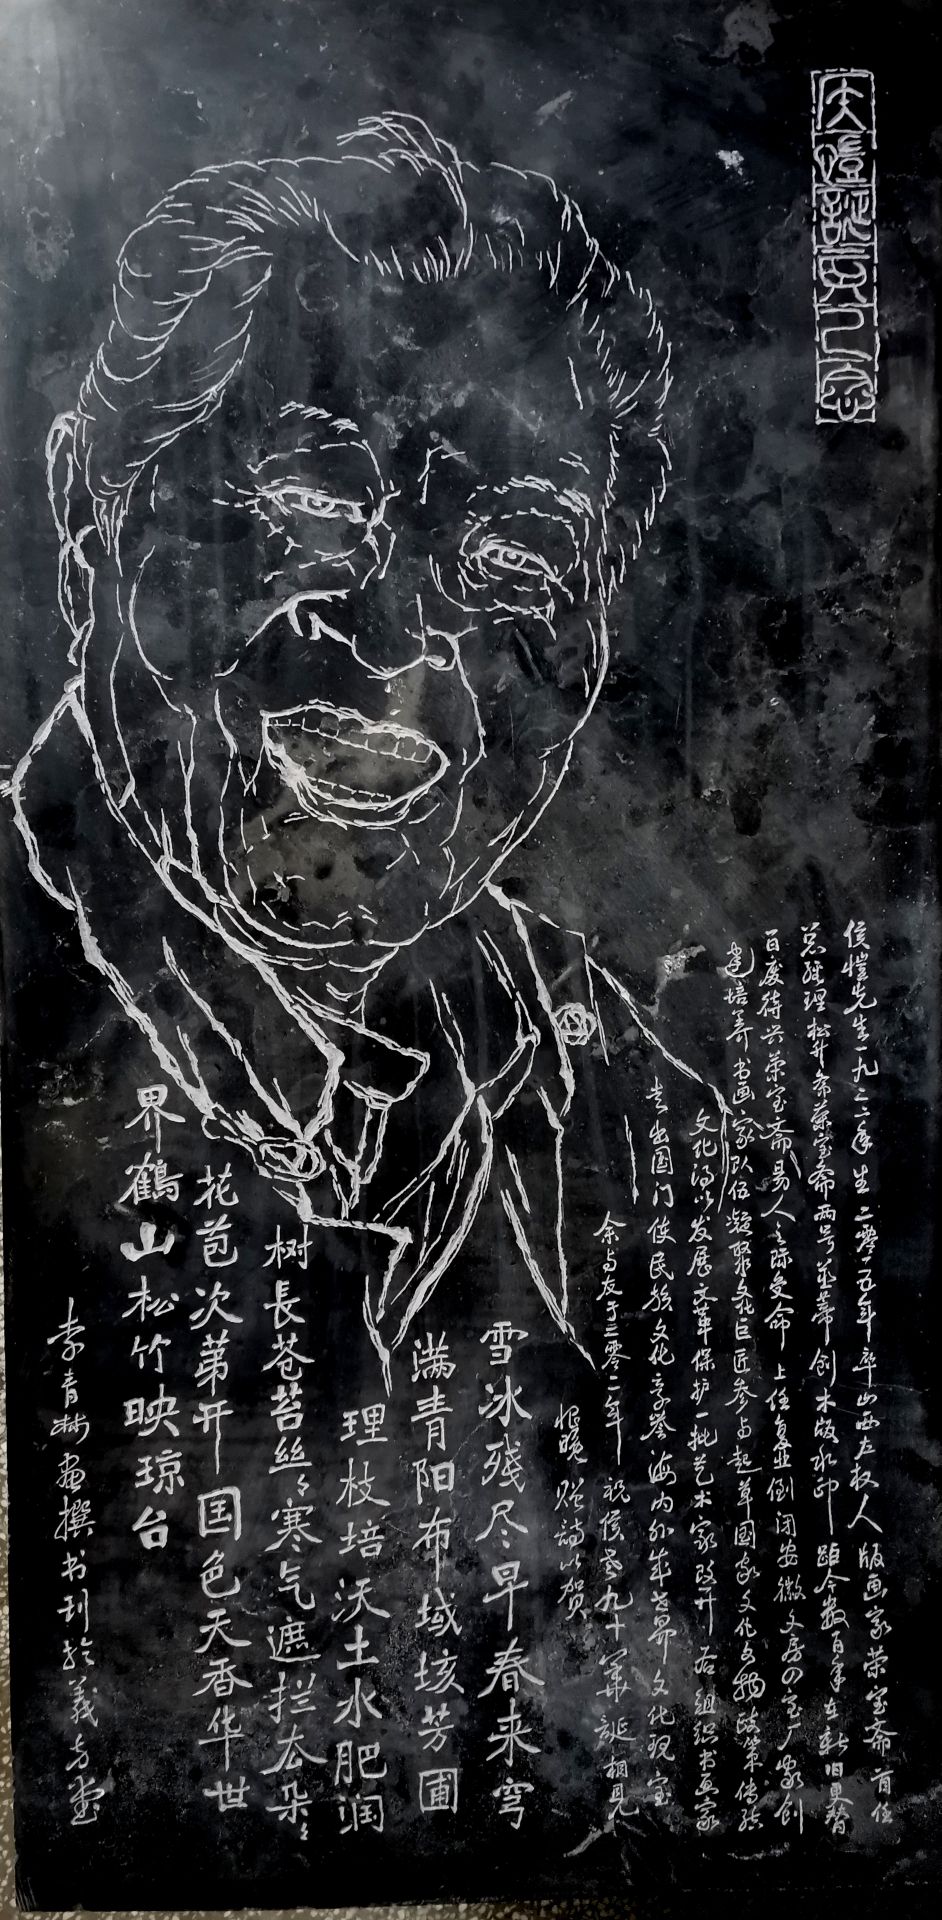 侯恺诞辰纪念
侯恺先生一九二二年生 二零一五年卒山西左权人 版画家荣宝斋首任
总经理松竹斋荣宝斋两号并蒂创木版水印 距今数百年在新旧更替
百废待兴荣宝斋易人之际受命上任复业倒闭安徽文房四宝厂家创
建培养书画家队伍凝聚文化巨匠参与起草国家文化文物政策传统
文化得以发展文革保护一批艺术家改开后组织书画家
走出国门使民族文化享誉海内外牵世界文化现宝
余与友于二零一二年 祝侯老九十华诞相见
恨晚 赠诗以贺
雪冰残尽早春来穹
满青阳布域垓芳圃
理枝培沃土水肥润
树長苍苔丝丝寒气遮拦夳朵朵
花苞次苐开国色天香华世
界鶴山松竹映琼台
李青林画撰书刊於義方堂